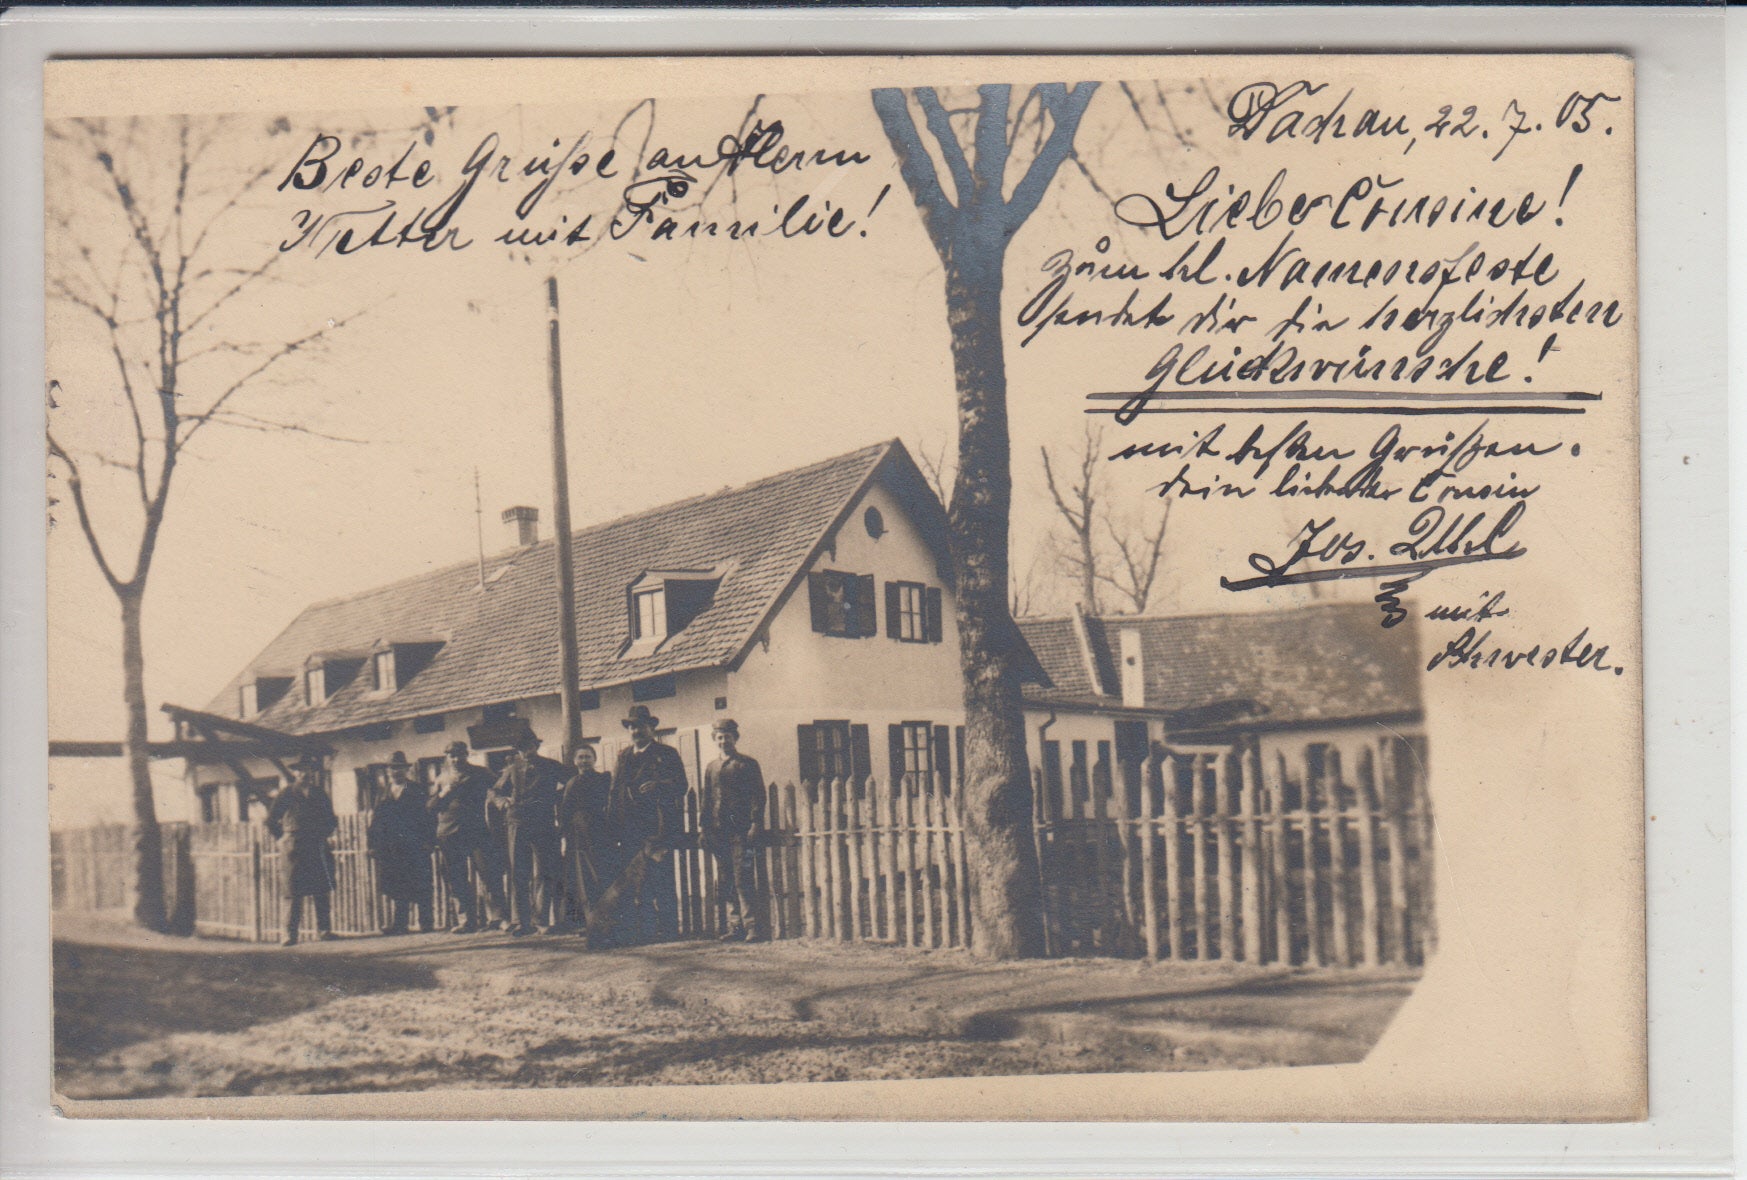 Dachau, 22. 7. 05.
Beste Grüße an Herrn
Vetter mit Familie!
Liebe Cousine!
Zum hl. Namensfeste
sendet dir die herzlichsten
Glückwünsche!
mit besten Grüßen.
dein liebender Cousin
Jos.
mit
Schwester.